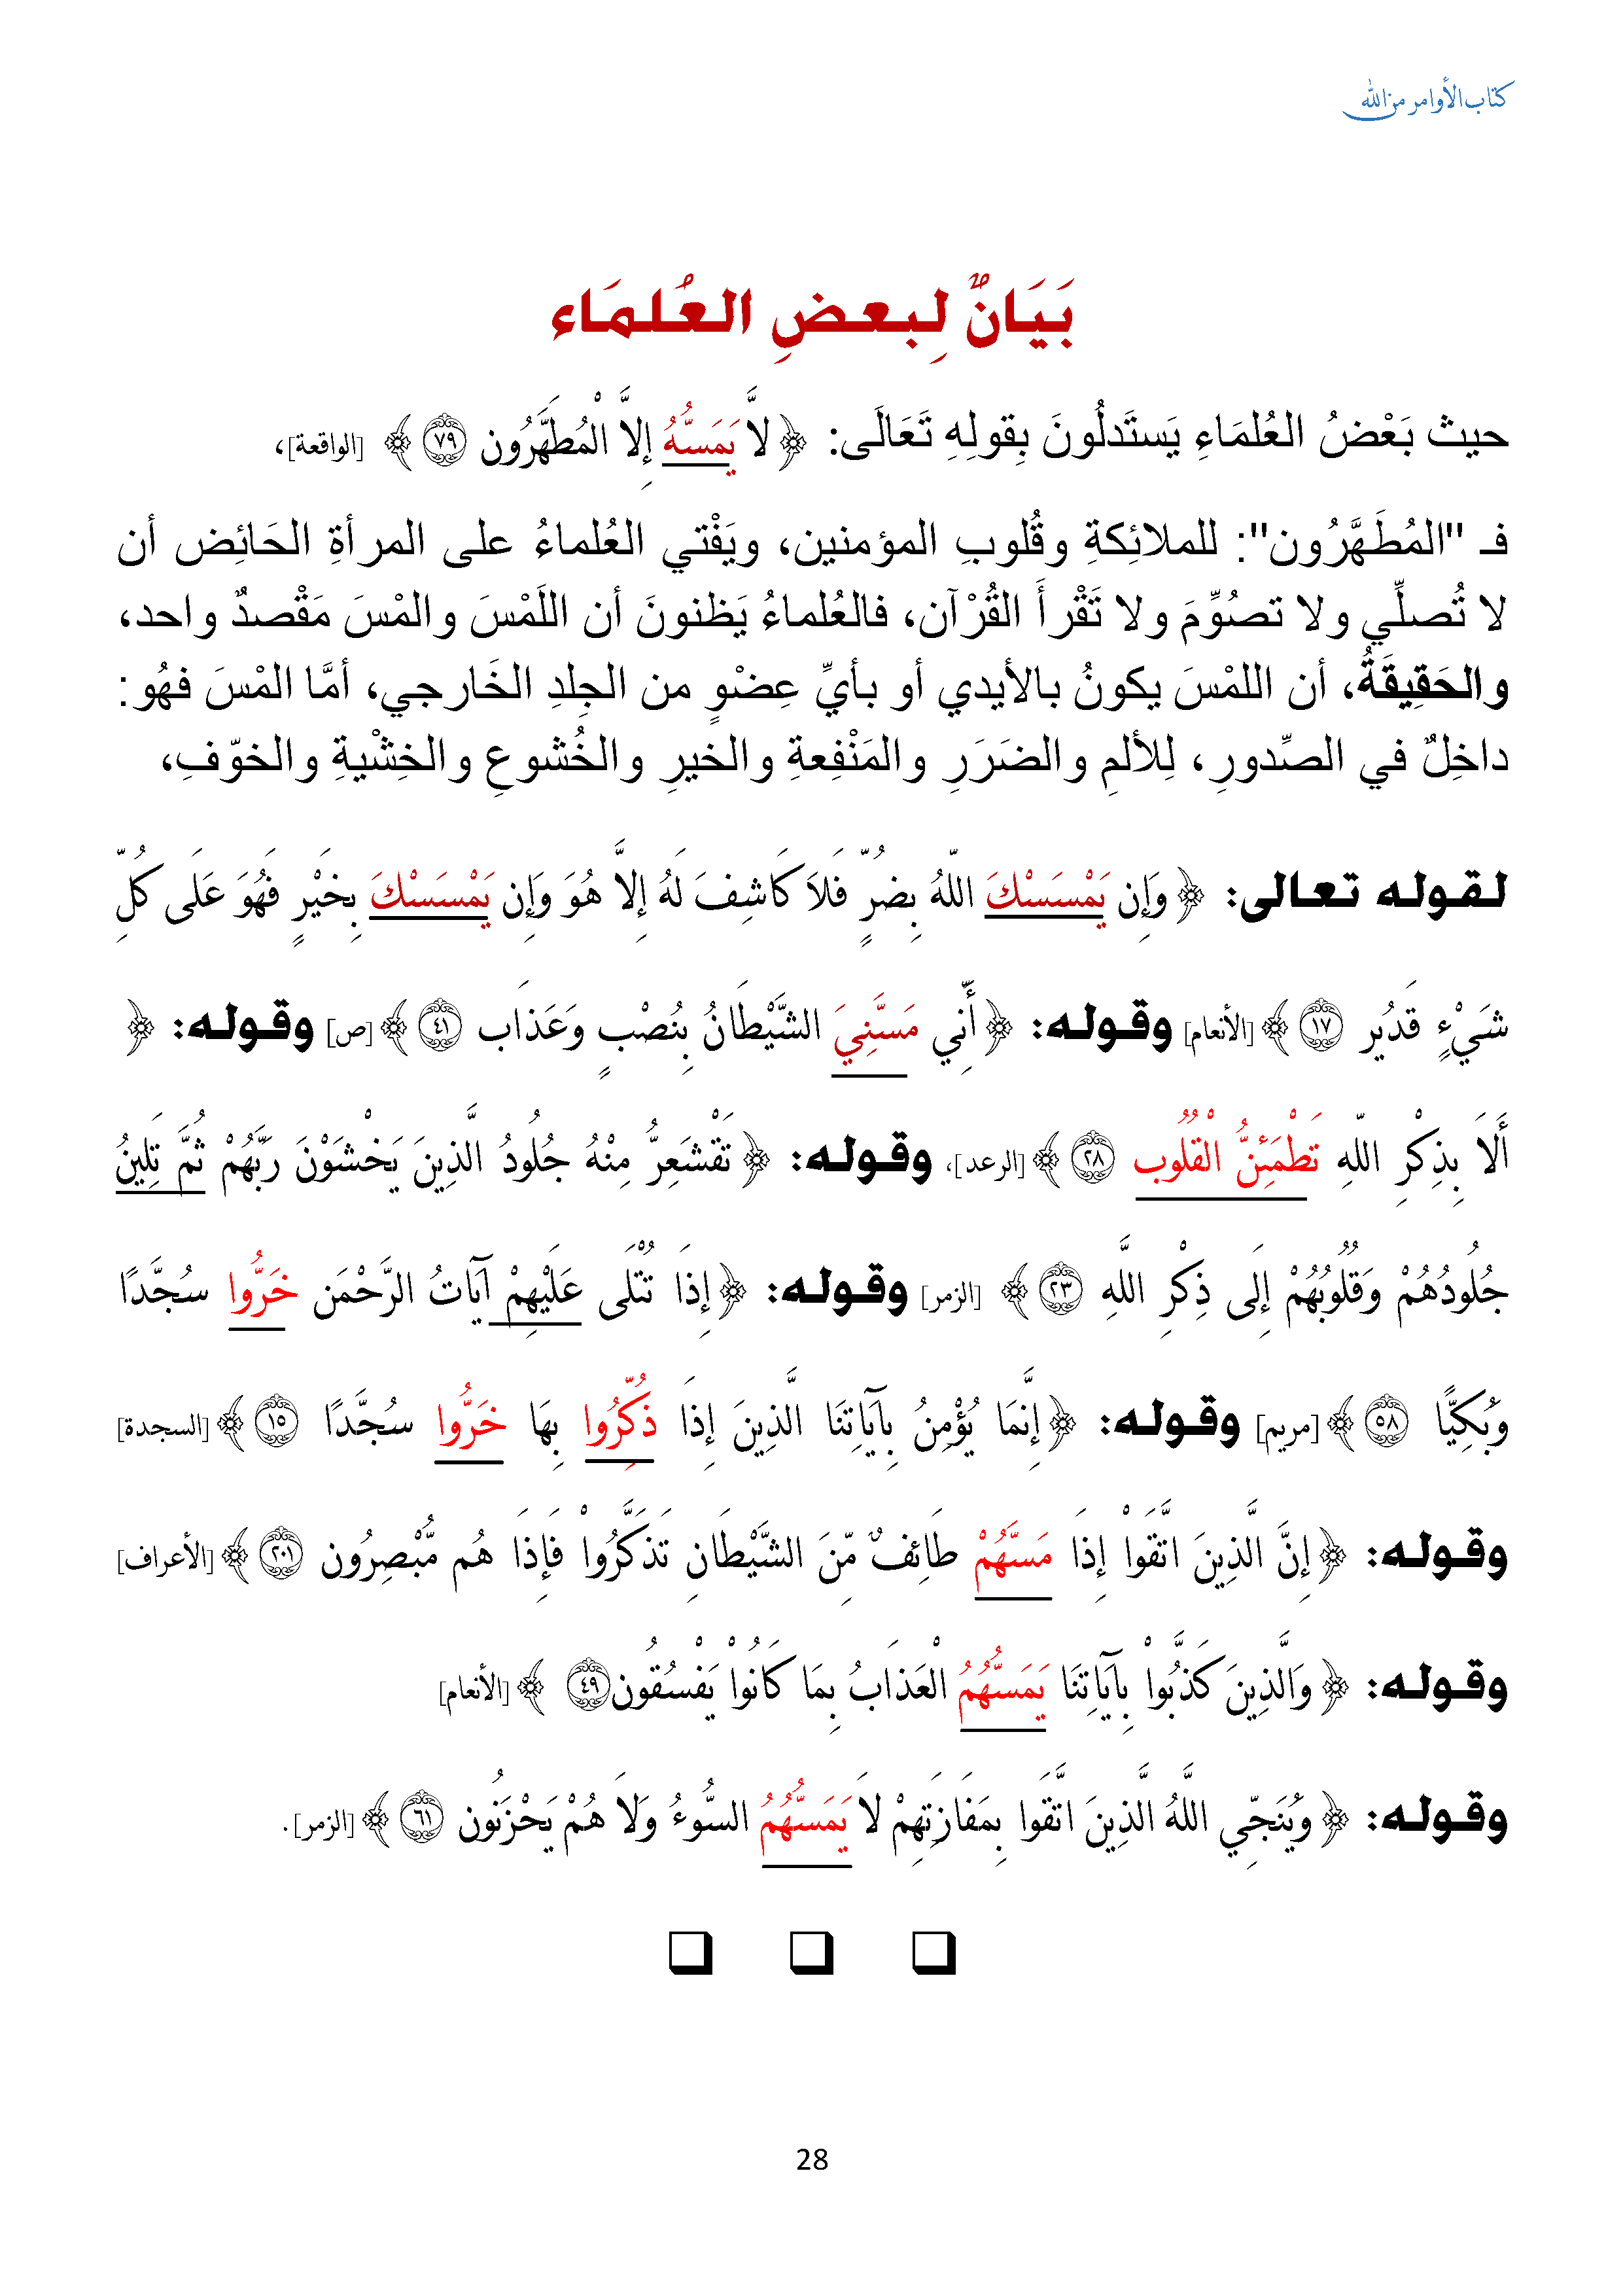 كتاب الأوامر من الله
بَيَانٌ لِبعضِ العُلمَاء
حيث بَعْضُ العُلمَاءِ يَستَدلُونَ بِقولِهِ تَعَالَى: ﴿ لاَّ يَمَسُّهُ إِلاَّ الْمُطَهَّرُون ٧٩ ﴾ [الواقعة]،
فـ "المُطَهَّرُون": للملائِكةِ وقُلوبِ المؤمنين، ويَفْتي العُلماءُ على المرأةِ الحَائِض أن
لا تُصلِّي ولا تصُوِّمَ ولا تَقْرأَ القُرْآن، فالعُلماءُ يَظنونَ أن اللَمْسَ والمْسَ مَقْصدٌ واحد،
والحَقِيقَةُ، أن اللمْسَ يكونُ بالأيدي أو بأيِّ عِضْوٍ من الجِلدِ الخَارجي، أمَّا المْسَ فهُو:
داخِلٌ في الصِّدورِ، لِلألمِ والضَرَرِ والمَنْفِعةِ والخيرِ والخُشوعِ والخِشْيةِ والخوّفِ،
لقوله تعالى: ﴿ وَإِن يَمْسَسْكَ اللّهُ بِضُرٍّ فَلاَ كَاشِفَ لَهُ إِلاَّ هُوَ وَإِن يَمْسَسْكَ بِخَيْرٍ فَهُوَ عَلَى كُلِّ
شَيْءٍ قَدُير ١٧ ﴾ [الأنعام] وقوله: ﴿ أَنِّي مَسَّنِيَ الشَّيْطَانُ بِنُصْبٍ وَعَذَاب ٤١ ﴾ [ص] وقوله: ﴿
أَلاَ بِذِكْرِ اللّهِ تَطْمَئِنُّ الْقُلُوب ٢٨ ﴾ [الرعد]، وقوله: ﴿ تَقْشَعِرُّ مِنْهُ جُلُودُ الَّذِينَ يَخْشَوْنَ رَبَّهُمْ ثُمَّ تَلِينُ
جُلُودُهُمْ وَقُلُوبُهُمْ إِلَى ذِكْرِ اللَّهِ ٢٣ ﴾ [الزمر] وقوله: ﴿ إِذَا تُتْلَى عَلَيْهِمْ آيَاتُ الرَّحْمَن خَرُّوا سُجَّدًا
وَبُكِيًّا ٥٨ ﴾ [مريم] وقوله: ﴿ إِنَّمَا يُؤْمِنُ بِآيَاتِنَا الَّذِينَ إِذَا ذُكِّرُوا بِهَا خَرُّوا سُجَّدًا ١٥ ﴾ [السجدة]
وقوله: ﴿ إِنَّ الَّذِينَ اتَّقَواْ إِذَا مَسَّهُمْ طَائِفٌ مِّنَ الشَّيْطَانِ تَذَكَّرُواْ فَإِذَا هُم مُّبْصِرُون ٢٠١ ﴾ [الأعراف]
وقوله: ﴿ وَالَّذِينَ كَذَّبُواْ بِآيَاتِنَا يَمَسُّهُمُ الْعَذَابُ بِمَا كَانُواْ يَفْسُقُون ٤٩ ﴾ [الأنعام]
وقوله: ﴿ وَيُنَجِّي اللَّهُ الَّذِينَ اتَّقَوا بِمَفَازَتِهِمْ لاَ يَمَسُّهُمُ السُّوءُ وَلاَ هُمْ يَحْزَنُون ٦١ ﴾ [الزمر].
28